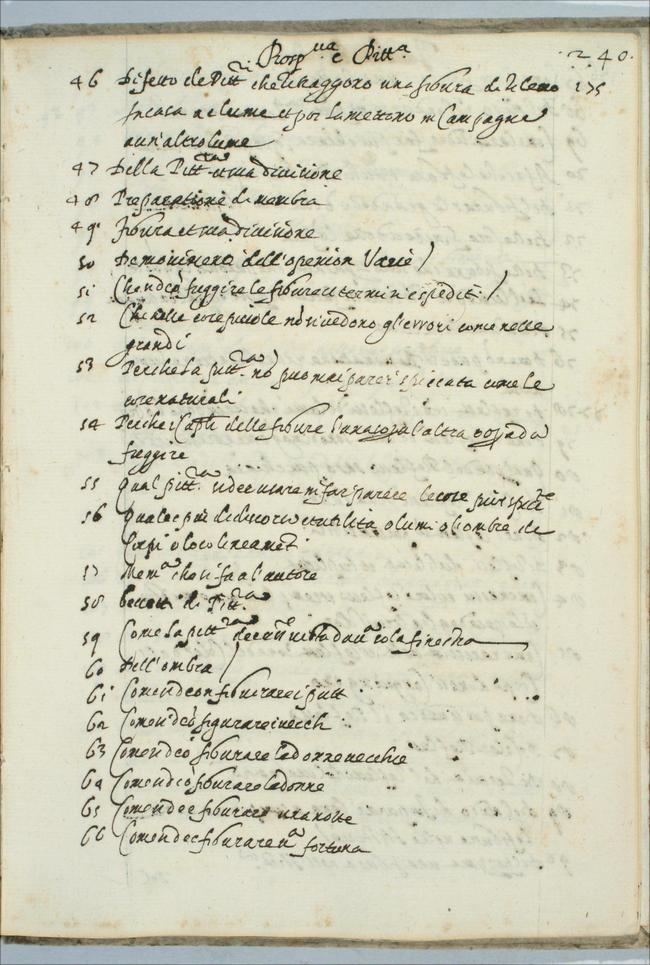 Prosp.ua e Pitt.a 240.
46 Difetto de Pitt.ri che ritraggono una figura di rilevo 175
in casa a un lume et poi la mettono in Campagna
a un altro lume
47 Della Pitt.ra et sua divisione
48 Preparatione di membra
49 figura et sua divisione
50 De movimenti dell'operion Varie
51 Che si deve fuggire le figure et termini espediti
52 Che nelle cose picciole non si vedono gl'errori come nelle
grandi
53 Perche la pitt.ra no puo mai parer spiccata come le
cose naturali
54 Perche i Capit. delle figure l'una sopra l'altra cosa da
fuggire
55 Qual pitt.ra si dee usare in far parere le cose piu spic.te
56 Qual e piu di discorso et utilità o lumi o l'ombre de
Corpi o loco lineamet.
57 Mem.a che si fa a l'autore
58 Precetti di Pitt.ra
59 Come la pitt.ra dee esser vista da una sola finestra
60 Dell'ombra
61 Come si deon figurare i putt
62 Come si deo figurare i vecch
63 Come si deo figurare le donne vecchie
64 Come si deo figurare le donne
65 Come si dee figurare una notte
66 Come si dee figurare un.a fortuna